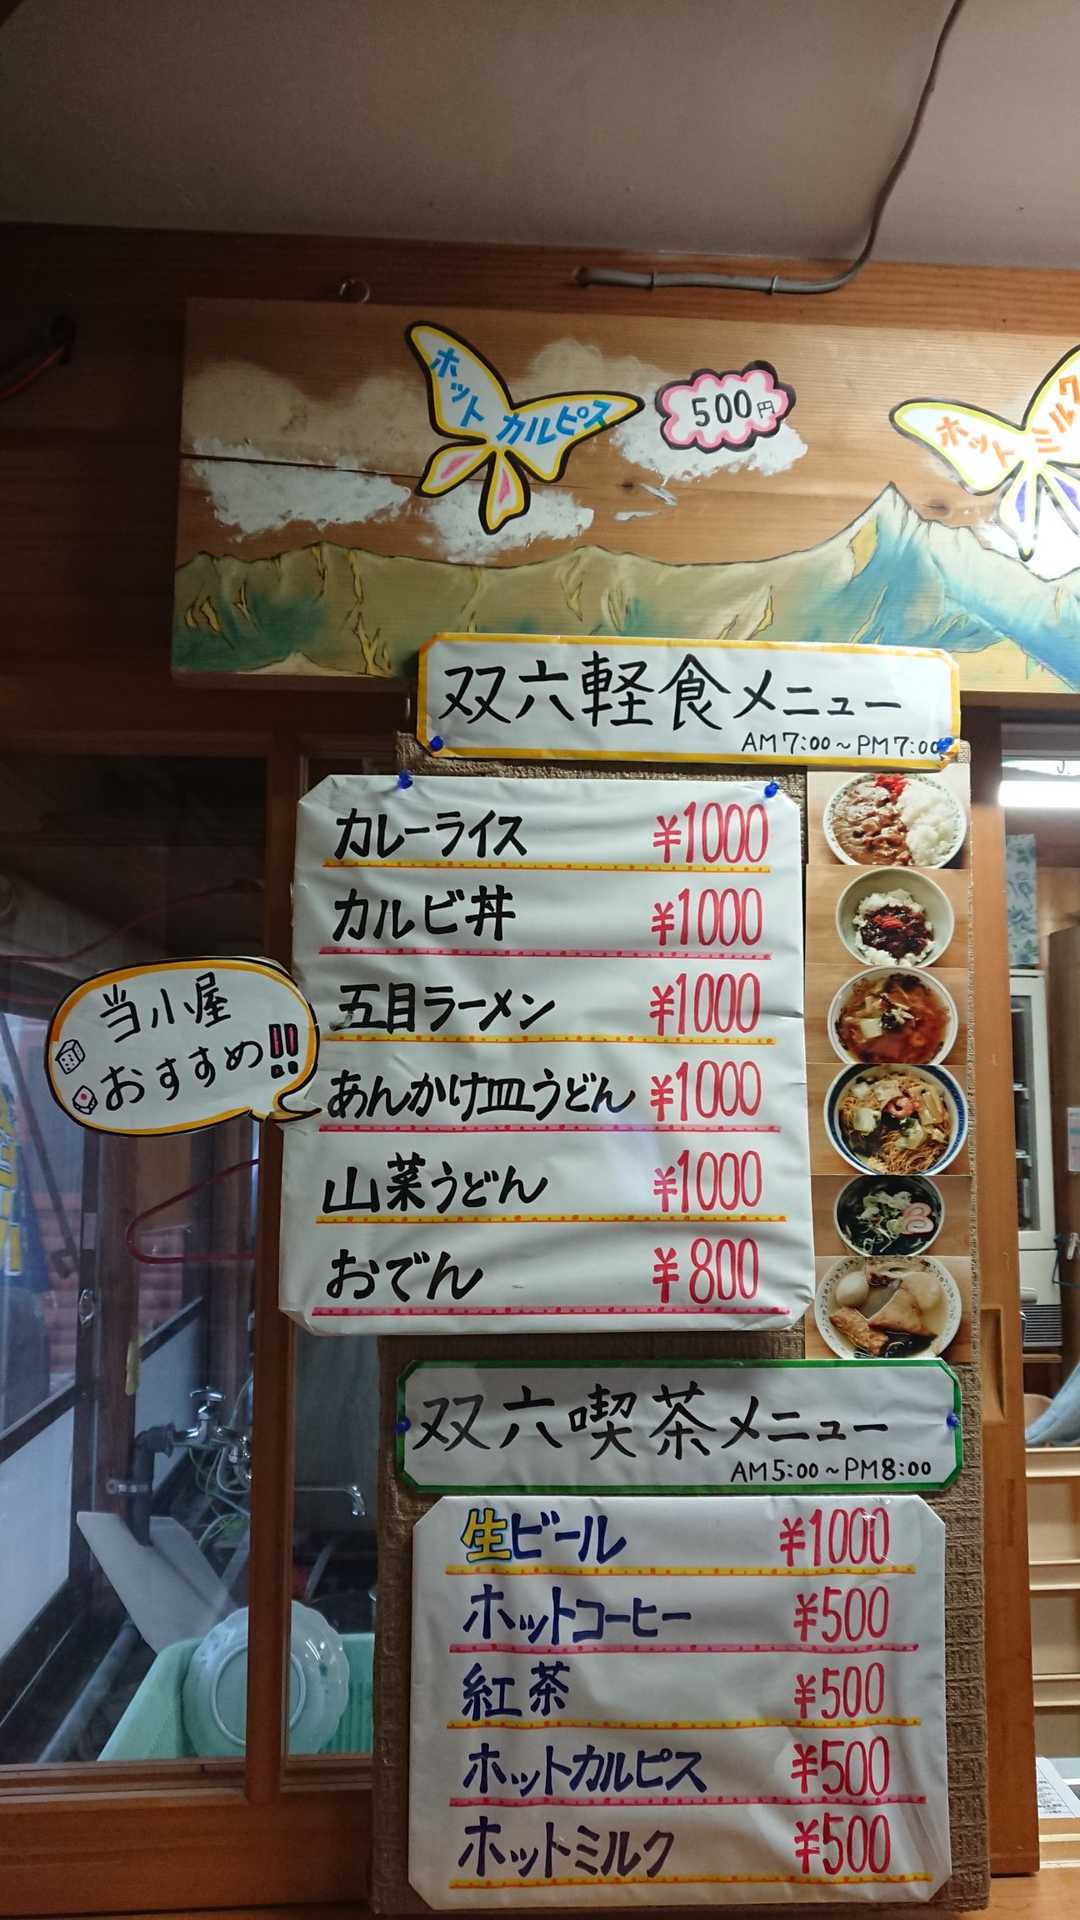 ホットカルピス
500円
ホットミルク
双六軽食メニュー
AM7:00～PM7:00
カレーライス ¥1000
カルビ丼 ¥1000
五目ラーメン ¥1000
当小屋
おすすめ!!
あんかけ皿うどん ¥1000
山菜うどん ¥1000
おでん ¥800
双六喫茶メニュー
AM5:00～PM8:00
生ビール ¥1000
ホットコーヒー ¥500
紅茶 ¥500
ホットカルピス ¥500
ホットミルク ¥500